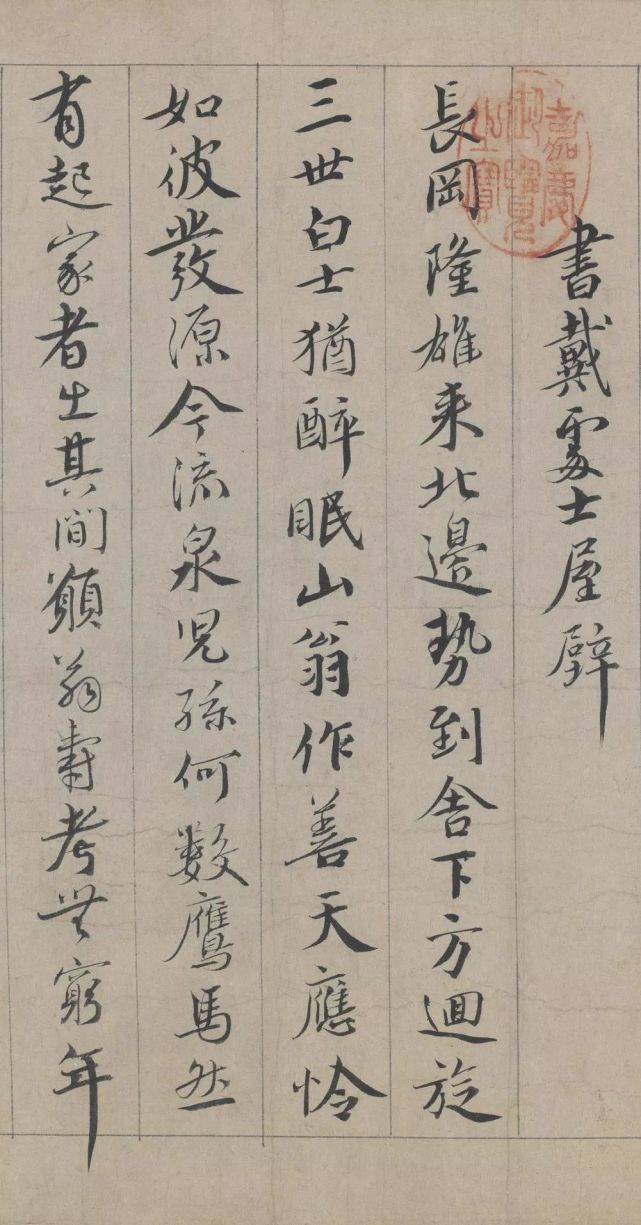 書戴處士屋壁
長岡隆雄來北邊勢到舍下方迴旋
三世白士猶醉眠山翁作善天應怜
如彼發源今流泉兒孫何數鷹馬然
有起家者出其間願翁壽考無窮年
嘉慶御覽之寶